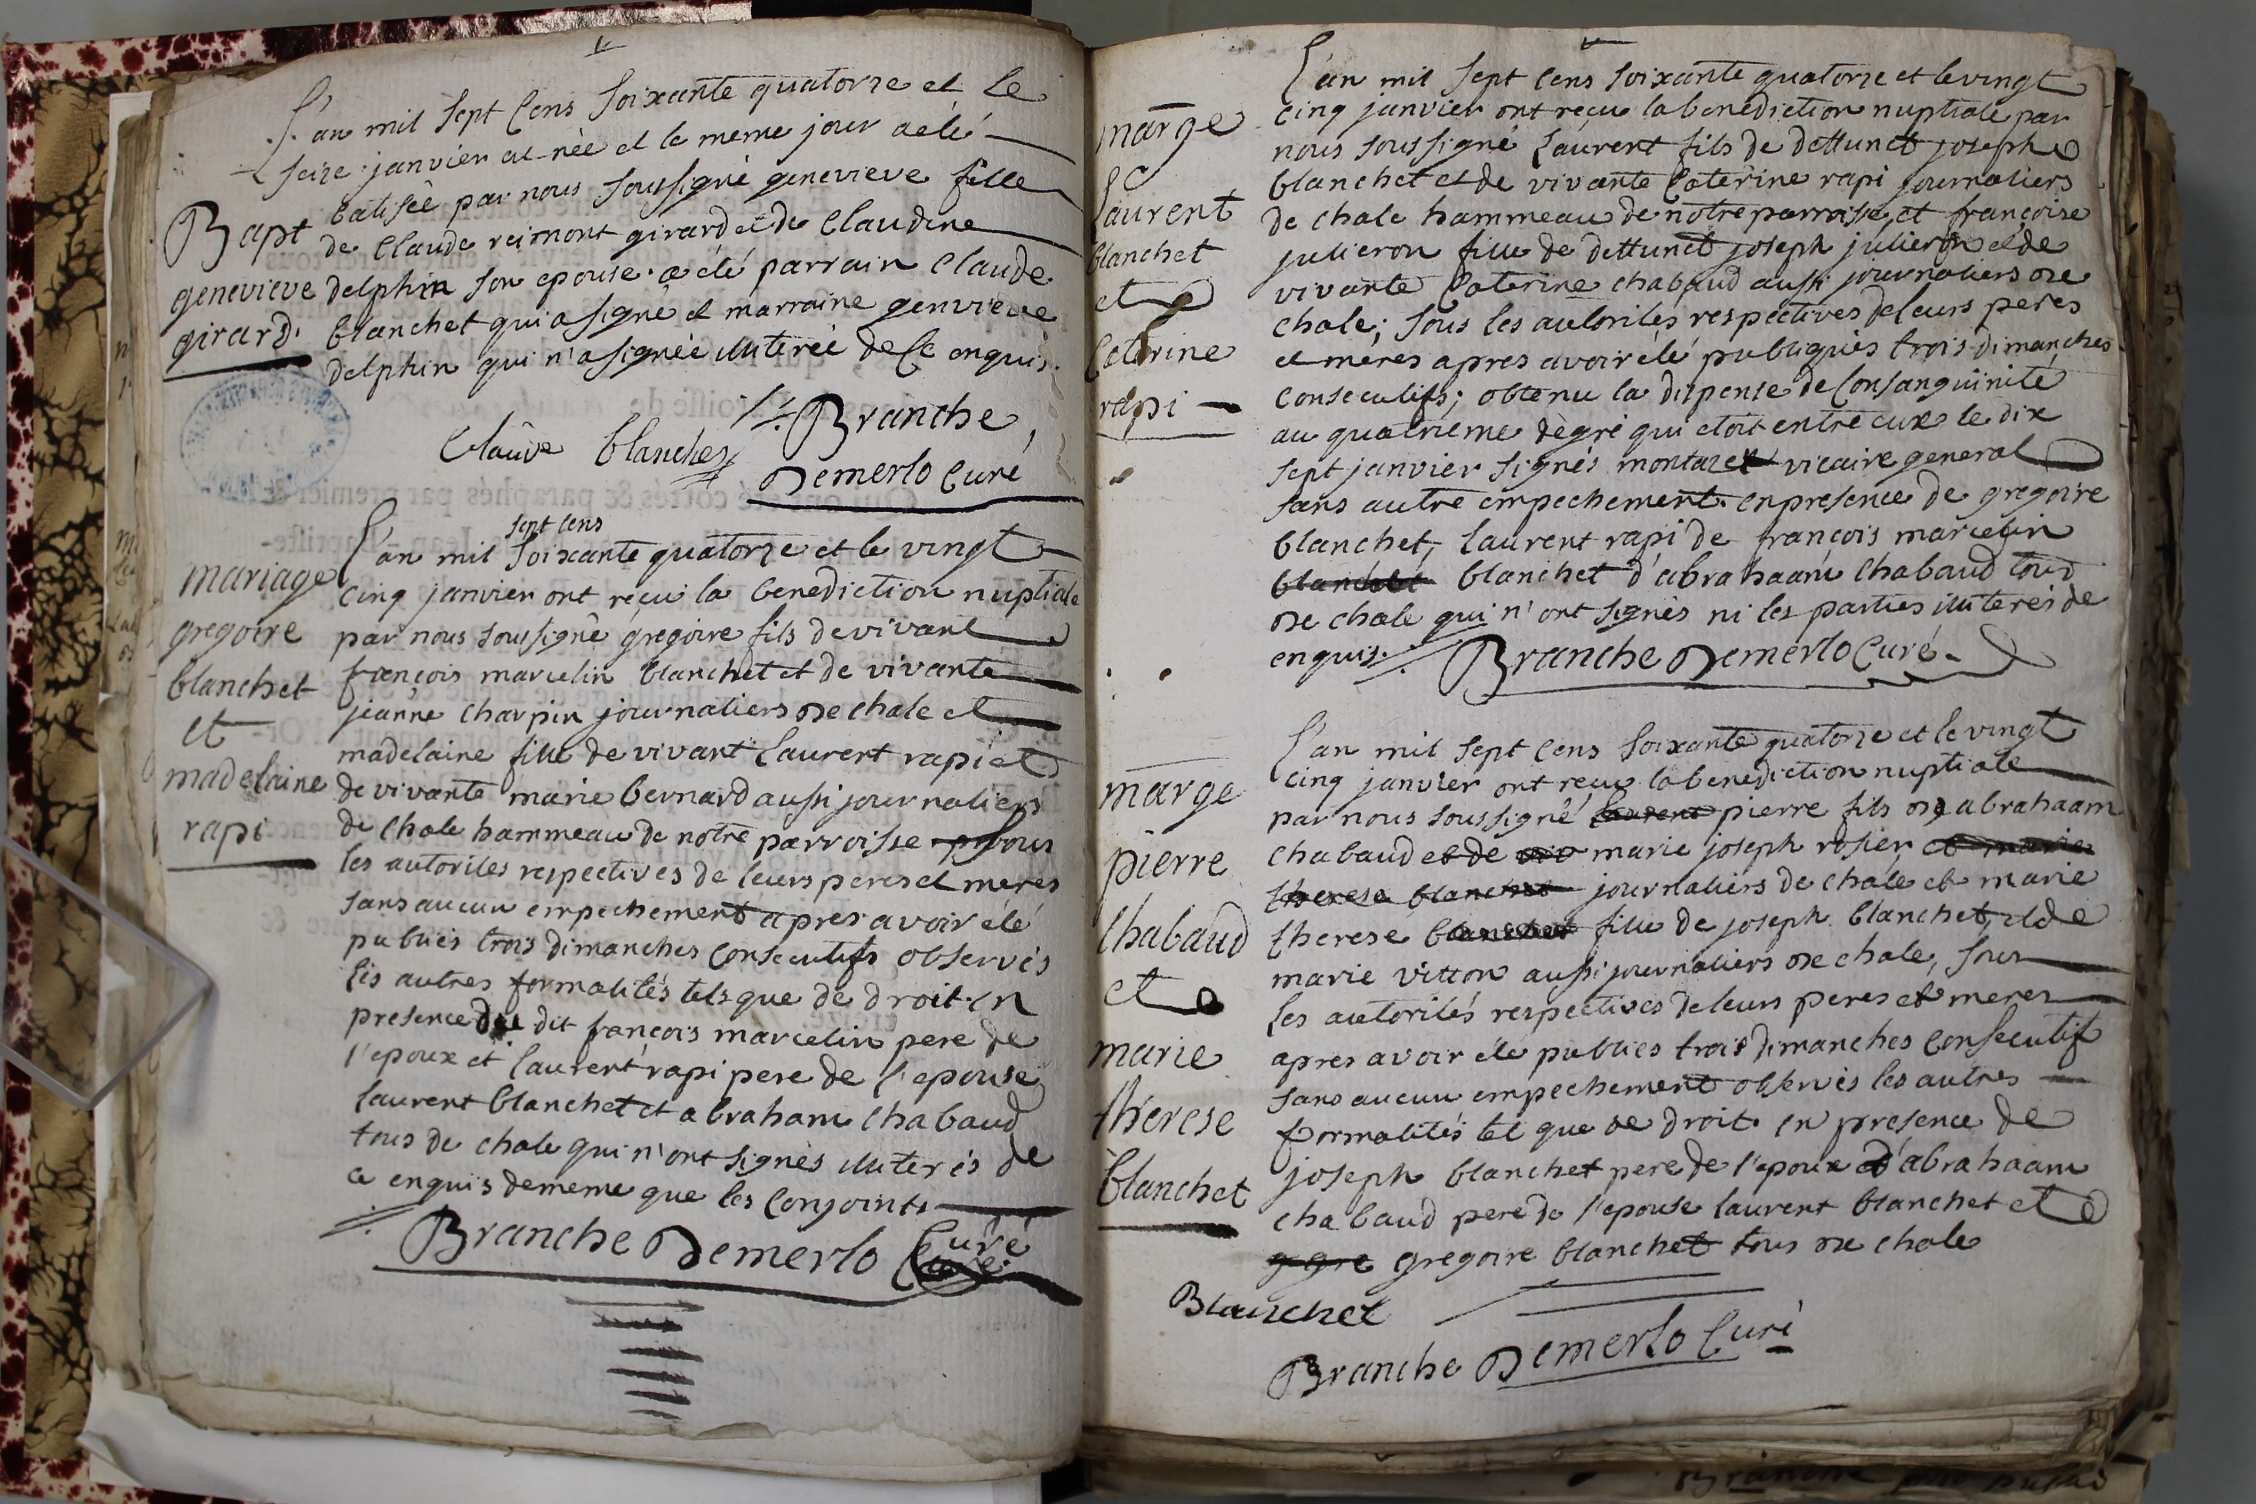 L'an mil sept cens soixante quatorze et le
seize janvier est née et le meme jour a été
batisée par nous soussigné genevieve fille
Bapt
genevieve
girard.
de claude reimont girard et de claudine
delphin son epouse. a été parrain claude
blanchet qui a signé et marraine genvieve
delphin qui n'a signée illiterée de ce enquis.
Claude blanchet
Branche
Demerlo Curé
mariage
gregoire
blanchet
et
madelaine
rapi
L'an mil sept cens soixante quatorze et le vingt
cinq janvier ont reçu la benediction nuptiale
par nous soussigné gregoire fils de vivant
françois marcelin blanchet et de vivante
jeanne charpin journaliers de chale et
madelaine fille de vivant laurent rapi et
de vivante marie bernard aussi journaliers
de chale hammeau de notre parroisse sous
les autorites respectives de leurs peres et meres
sans aucun empechement apres avoir été
publiés trois dimanches consecutifs observés
les autres formalités tels que de droit. en
presence du dit françois marcelin pere de
l'epoux et laurent rapi pere de l'epouse
laurent blanchet et abraham chabaud
tous de chale qui n'ont signés illiterés de
ce enquis de meme que les conjoints
Branche Demerlo Curé
marge
Laurent
blanchet
et
Caterine
rapi
L'an mil sept cens soixante quatorze et le vingt
cinq janvier ont reçu la benediction nuptiale par
nous soussigné Laurent fils de deffunct joseph
blanchet et de vivante Caterine rapi journaliers
de chale hammeau de notre parroisse, et françoise
julieron fille de deffunct joseph julieron et de
vivante Caterine chabaud aussi journaliers de
chale; sous les autorités respectives de leurs peres
et meres apres avoir été publiqués trois dimanches
consecutifs; obtenu la dispense de consanguinité
au quatrieme dègré qui etoit entre eux le dix
sept janvier signés montazet vicaire general
sans autre empechement. en presence de gregoire
blanchet, laurent rapi de françois marcelin
blanchet blanchet d'abrahaam chabaud tous
de chale qui n'ont signés ni les parties illiterés de
enquis. Branche Demerlo Curé
marge
pierre
Chabaud
et
marie
therese
blanchet
L'an mil sept cens soixante quatorze et le vingt
cinq janvier ont reçu la benediction nuptiale
par nous soussigné laurent pierre fils de abrahaam
chabaud et de viv marie joseph rosier et marie
therese blanchet journaliers de chale et marie
therese blanchet fille de joseph blanchet, et de
marie vitton aussi journaliers de chale, sous
les autorités respectives de leurs peres et meres
apres avoir été publiés trois dimanches consecutif
sans aucun empechement observés les autres
formalités tel que de droit. en presence de
joseph blanchet pere de l'epoux et d'abrahaam
chabaud pere de l'epouse laurent blanchet et
g gre gregoire blanchet tous de chale
Blanchet
Branche Demerlo Curé